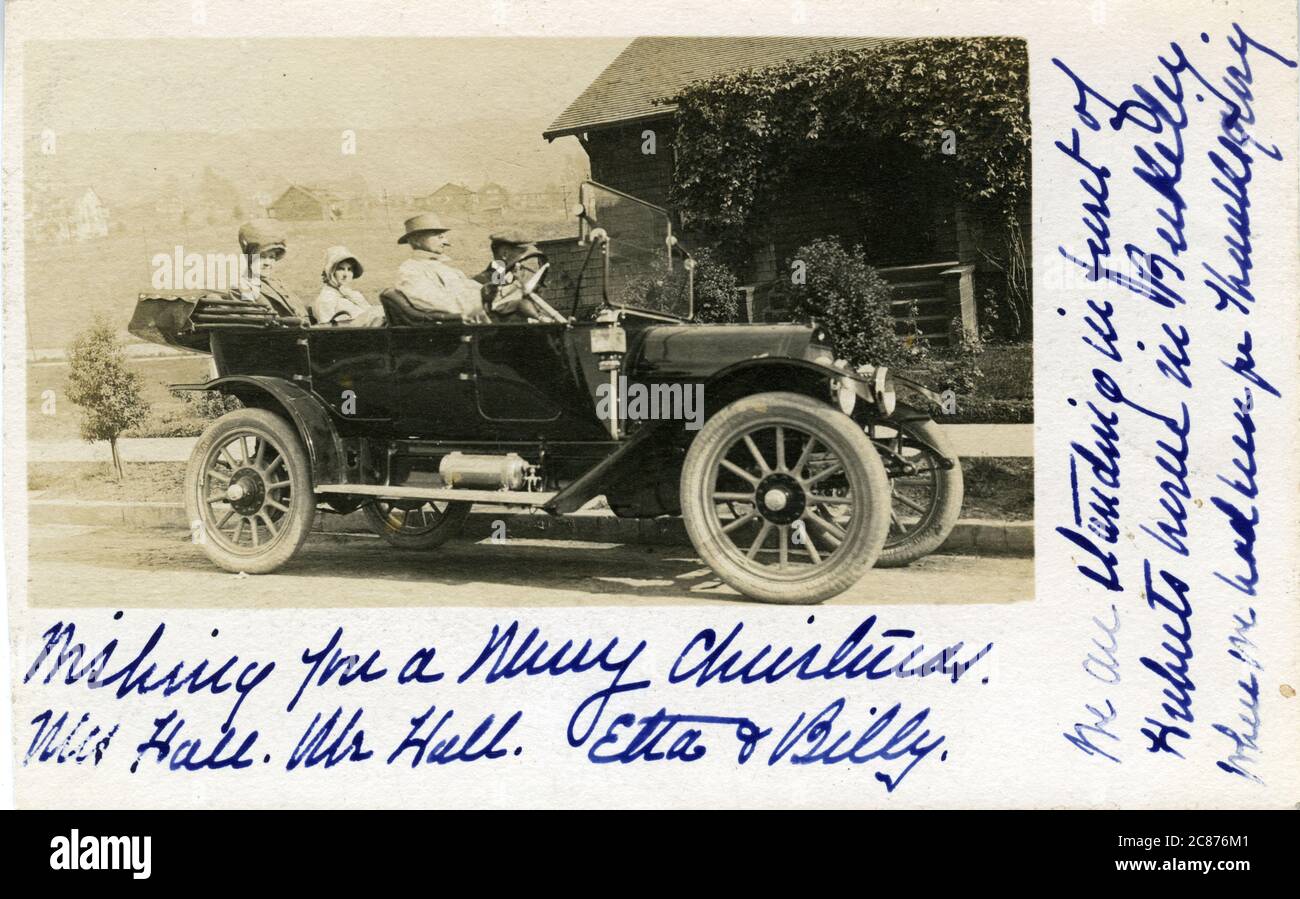 Wishing you a Merry Christmas.
Mrs Hall. Mr Hall. Etta & Billy.
We are standing in front of
Huberts home in Berkeley.
where we had been for Thanksgiving
alamy
a
alamy
Image ID: 2C876M1
www.alamy.com